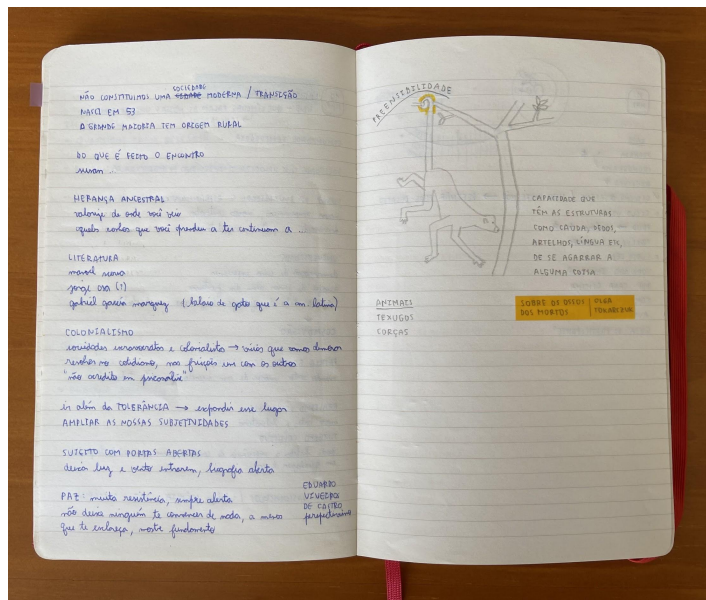 NÃO CONSTITUIMOS UMA SOCIEDADE MODERNA / TRANSIÇÃO
NASCI EM 53
A GRANDE MAIORIA TEM ORIGEM RURAL
DO QUE É FEITO O ENCONTRO
susan ..
HERANÇA ANCESTRAL
valorize de onde você veio
aqueles sonhos que você prendeu a ter continuam a ..
LITERATURA
manoel
jorge (?)
gabriel garcía marquez (balaio de gatos que é a am latina)
COLONIALISMO
sociedades escravocratas e colonialista → visões que vamos demorar
resolver no cotidiano, nas fricções um com os outros
"não acredito em psicanálise"
ir além da TOLERÂNCIA → expandir esse lugar
AMPLIAR AS NOSSAS SUBJETIVIDADES
SUJEITO COM PORTAS ABERTAS
deixa luz e vento entrarem, biografia aberta
PAZ: muita resistência, sempre alerta
não deixe ninguém te convencer de nada, a menos
que te esclareça, mostre fundamento
EDUARDO
VIVEIROS
DE CASTRO
perspectivismo
PREENSIBILIDADE
CAPACIDADE QUE
TÊM AS ESTRUTURAS
COMO CAUDA, DEDOS,
ARTELHOS, LÍNGUA ETC,
DE SE AGARRAR A
ALGUMA COISA
ANIMAIS
TEXUGOS
CORÇAS
SOBRE OS OSSOS DOS MORTOS | OLGA TOKARCZUK